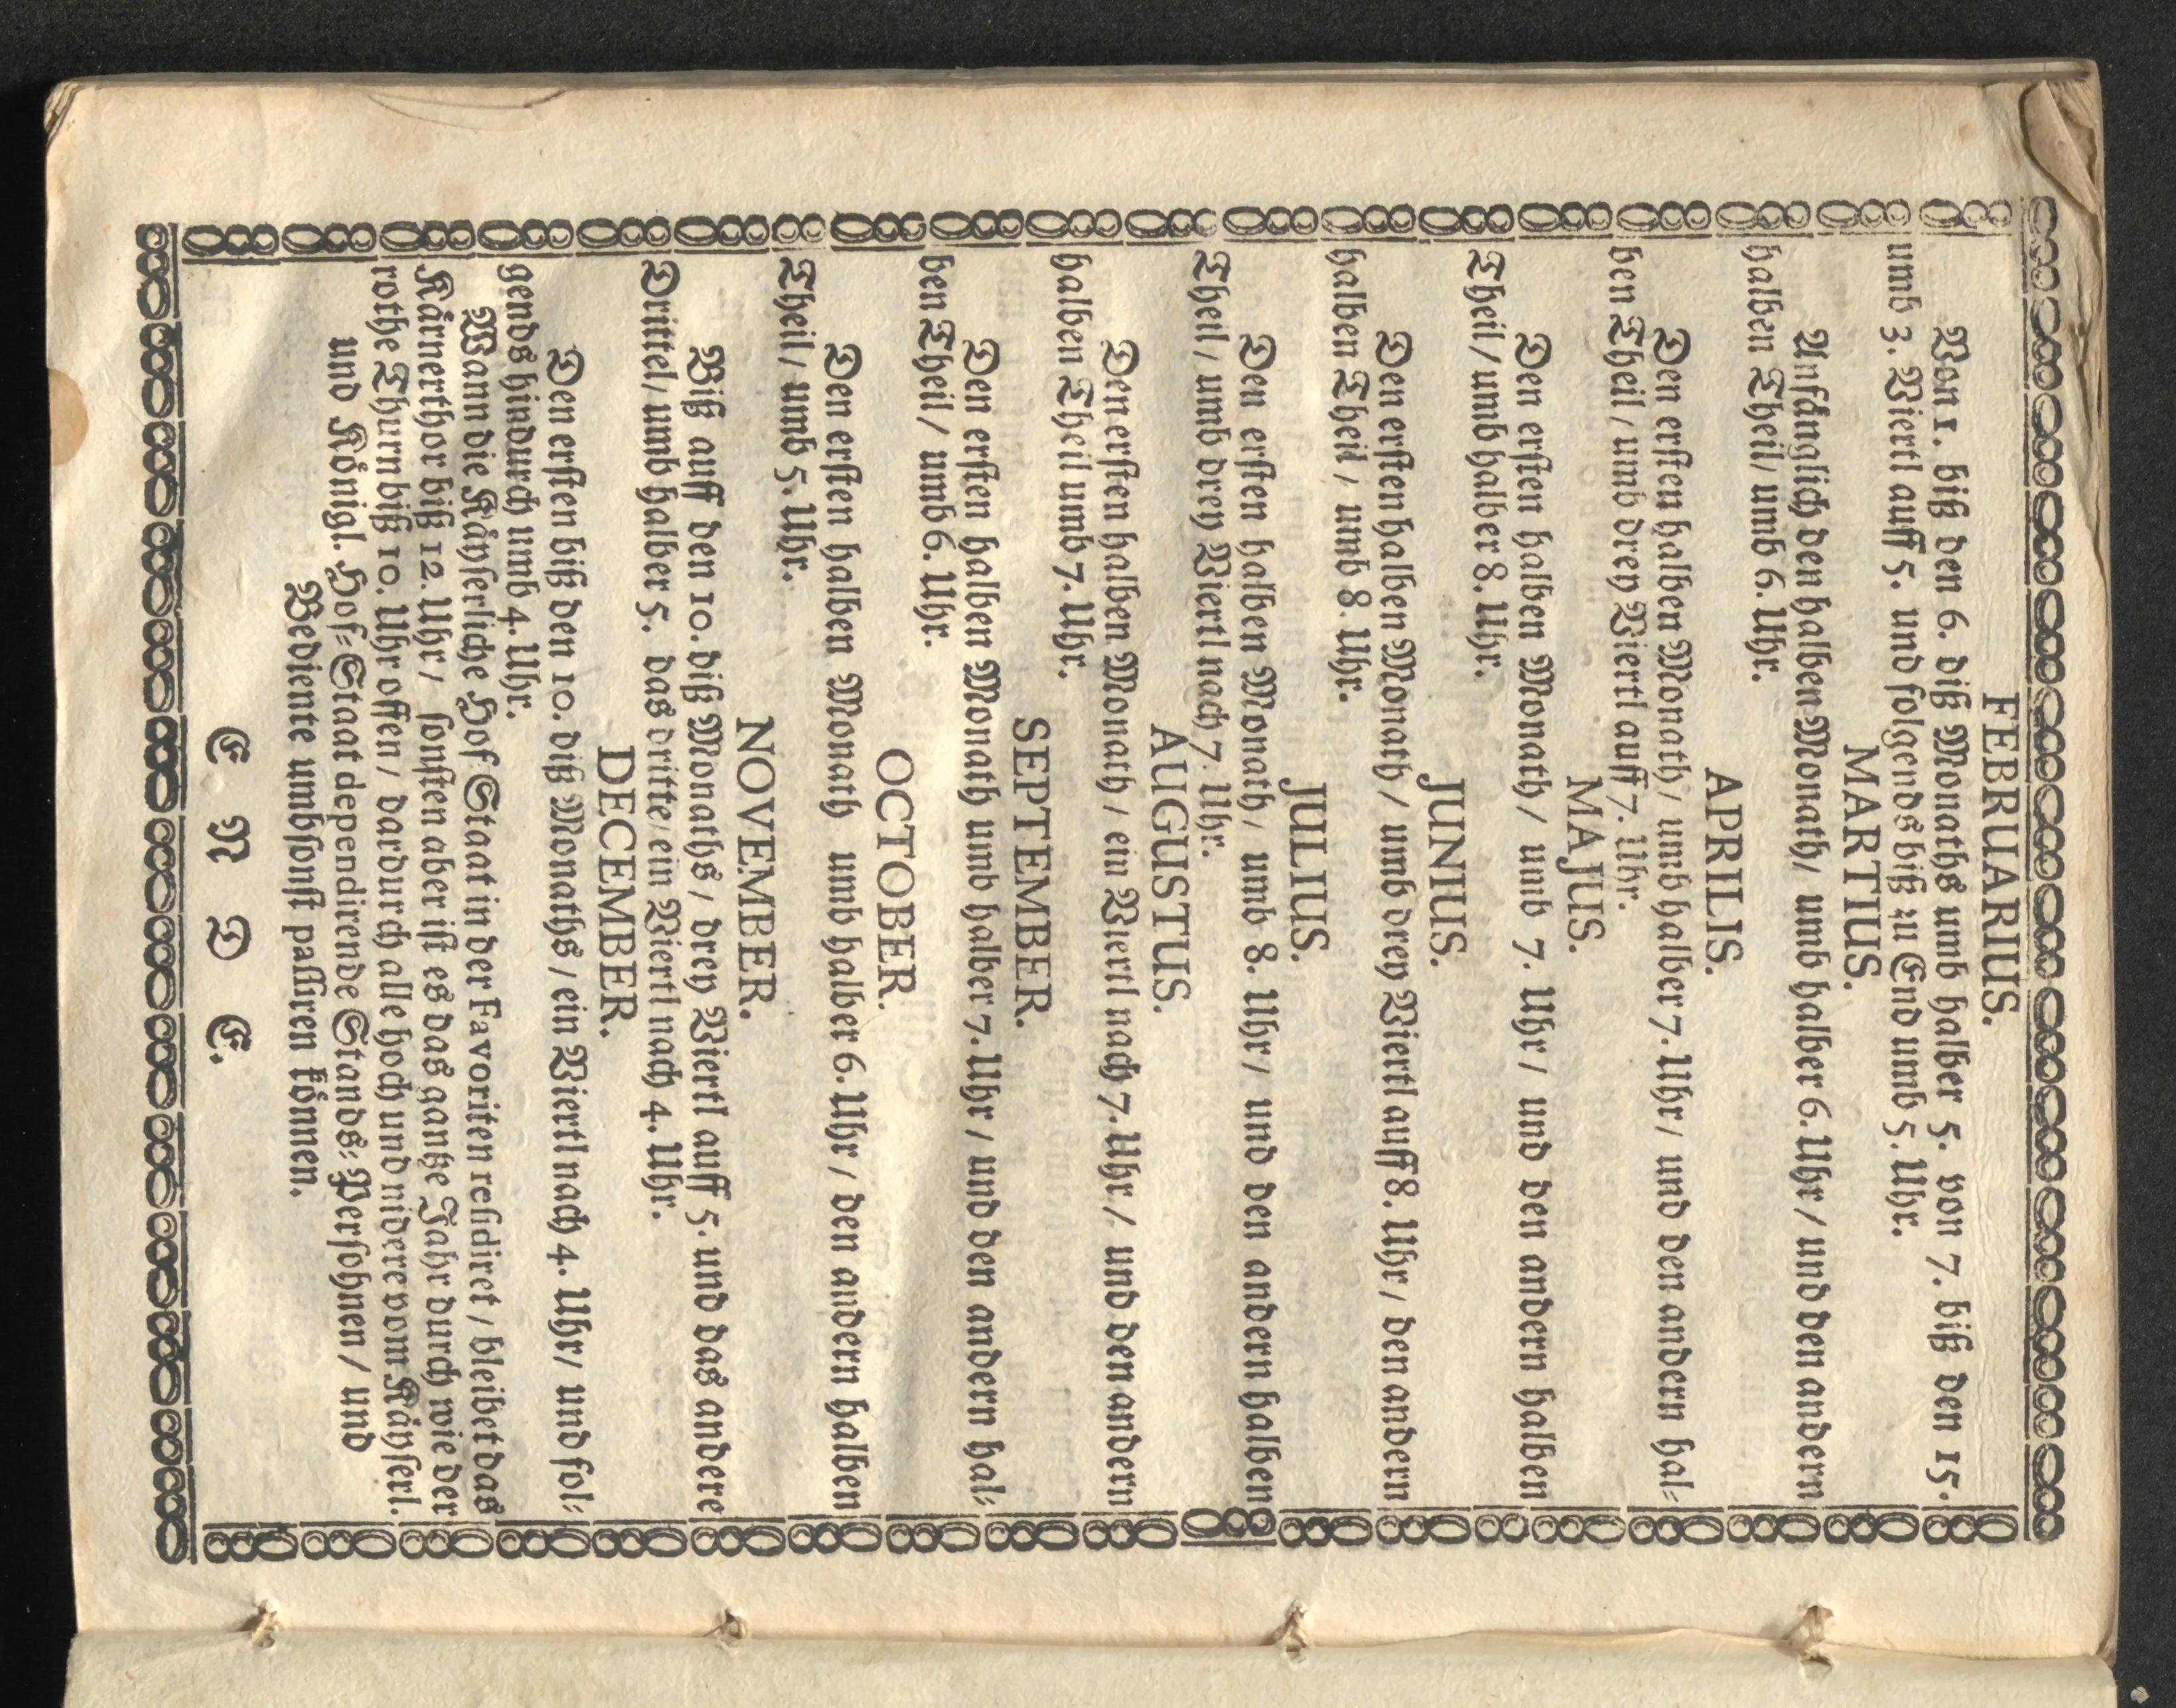 FEBRUARIUS.
Von 1. biß den 6. diß Monaths umb halber 5. von 7. biß den 15.
umb 3. Viertl auff 5. und folgends biß zu End umb 5. Uhr.
MARTIUS.
Anfänglich den halben Monath / umb halber 6. Uhr / und den andern
halben Theil / umb 6. Uhr.
APRILIS.
Den ersten halben Monath / umb halber 7. Uhr / und den andern hal-
ben Theil / umb drey Viertl auff 7. Uhr.
MAJUS.
Den ersten halben Monath / umb 7. Uhr / und den andern halben
Theil / umb halber 8. Uhr.
JUNIUS.
Den ersten halben Monath / umb drey Viertl auff 8. Uhr / den andern
halben Theil / umb 8. Uhr.
JULIUS.
Den ersten halben Monath / umb 8. Uhr / und den andern halben
Theil / umb drey Viertl nach 7. Uhr.
AUGUSTUS.
Den ersten halben Monath / ein Viertl nach 7. Uhr / und den andern
halben Theil umb 7. Uhr.
SEPTEMBER.
Den ersten halben Monath umb halber 7. Uhr / und den andern hal-
ben Theil / umb 6. Uhr.
OCTOBER.
Den ersten halben Monath umb halber 6. Uhr / den andern halben
Theil / umb 5. Uhr.
NOVEMBER.
Biß auff den 10. diß Monaths / drey Viertl auff 5. und das andere
Drittel / umb halber 5. das dritte / ein Viertl nach 4. Uhr.
DECEMBER.
Den ersten biß den 10. diß Monaths / ein Viertl nach 4. Uhr / und fol-
gends hindurch umb 4. Uhr.
Wann die Käyserliche Hof Staat in der Favoriten residiret / bleibet das
Kärnerthor biß 12. Uhr / sonsten aber ist es das gantze Jahr durch wie der
rothe Thurn biß 10. Uhr offen / dardurch alle hoch und nidere vom Käyserl.
und Königl. Hof-Staat dependirende Stands-Persohnen / und
Bediente umbsonst passiren können.
E N D E.